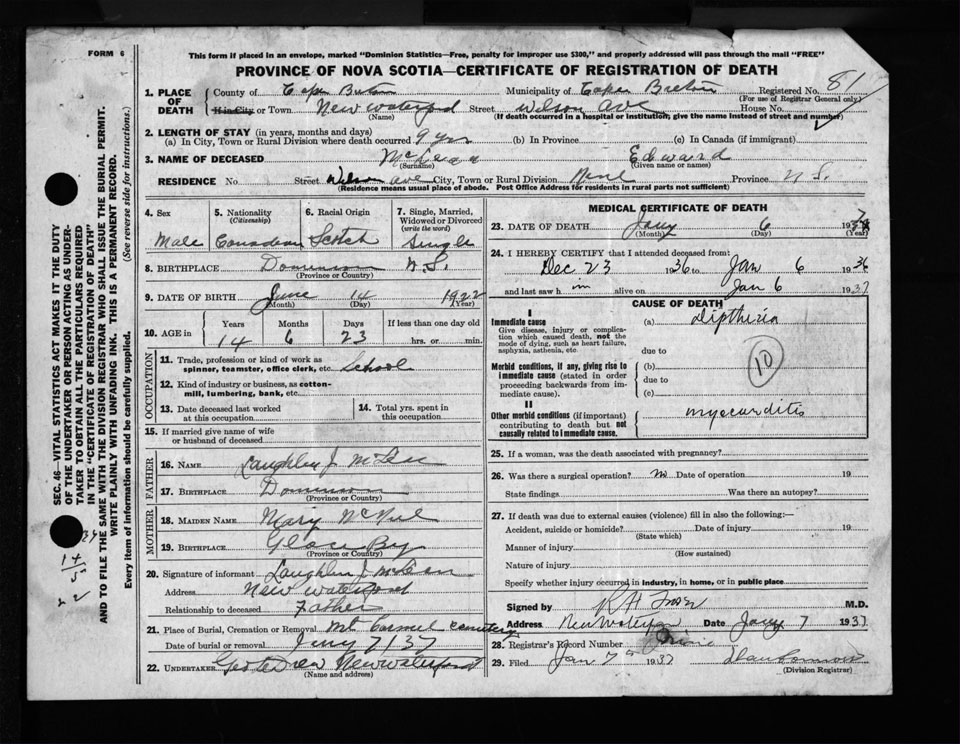 FORM 6
This form if placed in an envelope, marked "Dominion Statistics—Free, penalty for improper use $300," and properly addressed will pass through the mail "FREE"
PROVINCE OF NOVA SCOTIA—CERTIFICATE OF REGISTRATION OF DEATH
81
1. PLACE OF DEATH County of Cape Breton Municipality of Cape Breton Registered No.
(For use of Registrar General only)
If in City or Town New Waterford Street Wilson Ave House No.
(Name) (If death occurred in a hospital or institution, give the name instead of street and number)
2. LENGTH OF STAY (in years, months and days)
(a) In City, Town or Rural Division where death occurred 9 yrs (b) In Province (c) In Canada (if immigrant)
3. NAME OF DECEASED McLean Edward
(Surname) (Given name or names)
RESIDENCE No Street Wilson Ave City, Town or Rural Division Province N.S.
(Residence means usual place of abode. Post Office Address for residents in rural parts not sufficient)
4. Sex 5. Nationality (Citizenship) 6. Racial Origin 7. Single, Married, Widowed or Divorced (write the word)
Male Canadian Scotch Single
8. BIRTHPLACE Dominion N.S.
(Province or Country)
9. DATE OF BIRTH June 14 1922
(Month) (Day) (Year)
10. AGE in Years Months Days If less than one day old
14 6 23 hrs. or min.
OCCUPATION
11. Trade, profession or kind of work as spinner, teamster, office clerk, etc. School
12. Kind of industry or business, as cotton-mill, lumbering, bank, etc.
13. Date deceased last worked at this occupation 14. Total yrs. spent in this occupation.
15. If married give name of wife or husband of deceased
FATHER
16. NAME Laughlin J. McLean
17. BIRTHPLACE Dominion
(Province or Country)
MOTHER
18. MAIDEN NAME Mary McNeil
19. BIRTHPLACE Glace Bay
(Province or Country)
20. Signature of informant Laughlin J. McLean
Address New Waterford
Relationship to deceased Father
21. Place of Burial, Cremation or Removal Mt Carmel Cemetery
Date of burial or removal Jany 7/37
22. UNDERTAKER New Waterford
(Name and address)
MEDICAL CERTIFICATE OF DEATH
23. DATE OF DEATH Jany 6 1937
(Month) (Day) (Year)
24. I HEREBY CERTIFY that I attended deceased from:
Dec 23 1936 to Jan 6 1936
and last saw h im alive on Jan 6 1937
CAUSE OF DEATH
I
Immediate cause (a) Diptheria
Give disease, injury or complication which caused death, not the mode of dying, such as heart failure, asphyxia, asthenia, etc. due to
Morbid conditions, if any, giving rise to immediate cause (stated in order proceeding backwards from immediate cause). (b)
due to
(c)
10
II
Other morbid conditions (if important) contributing to death but not causally related to immediate cause. myocarditis
25. If a woman, was the death associated with pregnancy?
26. Was there a surgical operation? no Date of operation 19
State findings Was there an autopsy?
27. If death was due to external causes (violence) fill in also the following:—
Accident, suicide or homicide? Date of injury 19
(State which)
Manner of injury
(How sustained)
Nature of injury
Specify whether injury occurred in industry, in home, or in public place
Signed by M.D.
Address New Waterford Date Jany 7 1937
28. Registrar's Record Number
29. Filed Jan 7th 1937
(Division Registrar)
SEC. 46—VITAL STATISTICS ACT MAKES IT THE DUTY
OF THE UNDERTAKER OR PERSON ACTING AS UNDER-
TAKER TO OBTAIN ALL THE PARTICULARS REQUIRED
IN THE "CERTIFICATE OF REGISTRATION OF DEATH"
AND TO FILE THE SAME WITH THE DIVISION REGISTRAR WHO SHALL ISSUE THE BURIAL PERMIT.
WRITE PLAINLY WITH UNFADING INK. THIS IS A PERMANENT RECORD.
Every item of information should be carefully supplied. (See reverse side for instructions.)